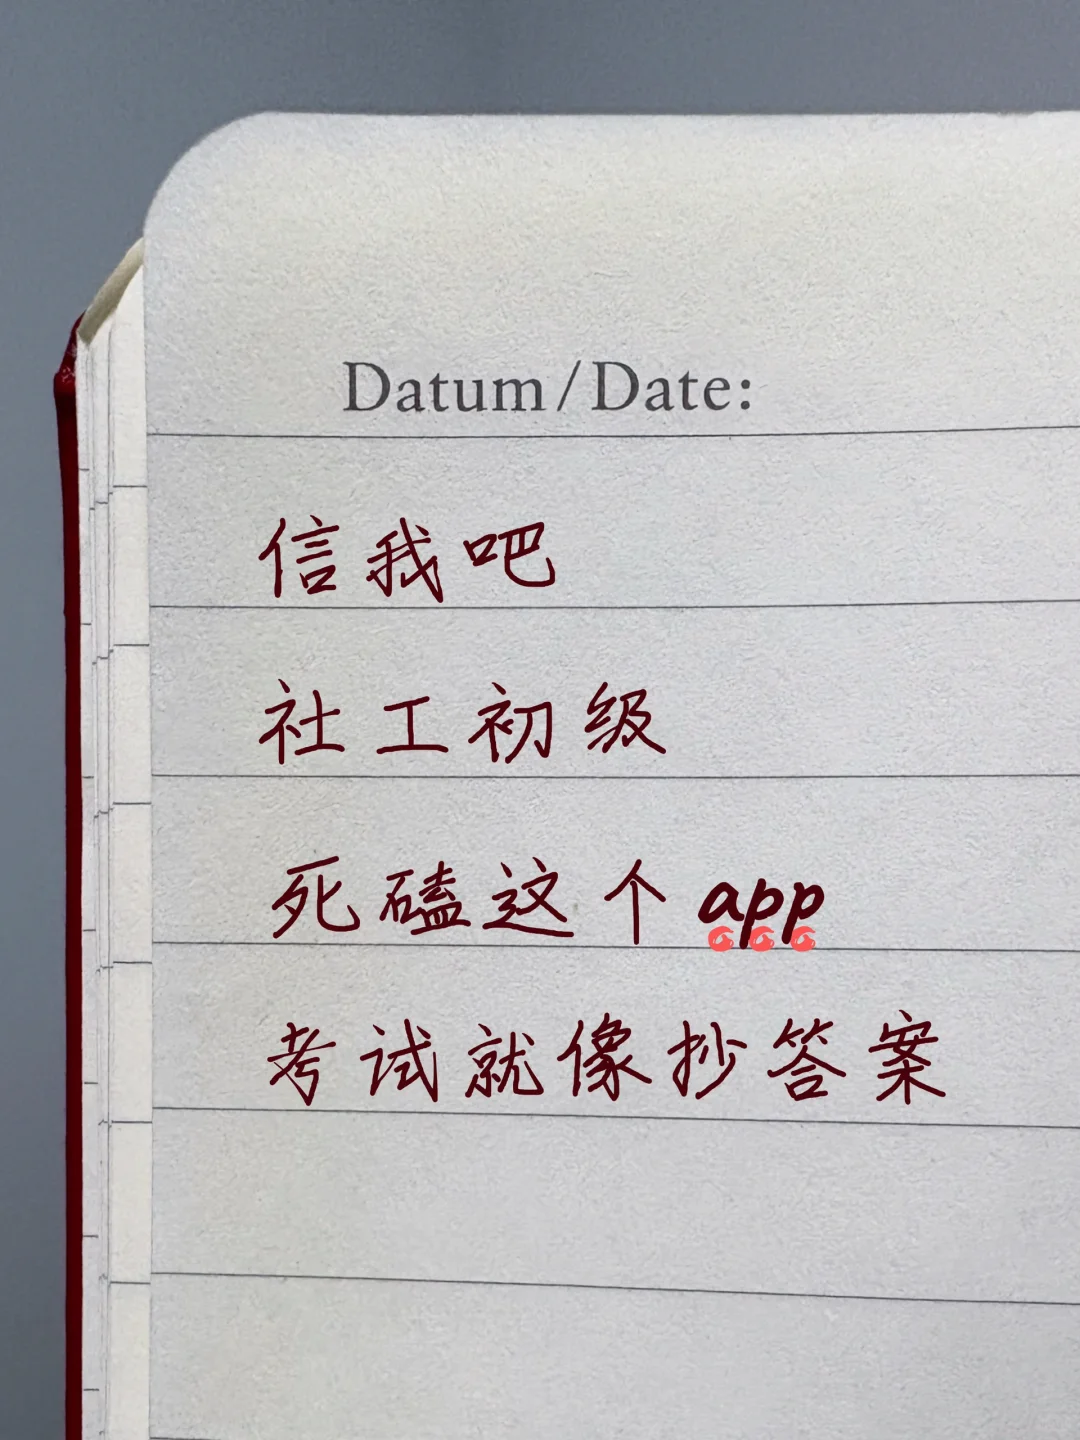 Datum/Date:
信我吧
社工初级
死磕这个app
考试就像抄答案